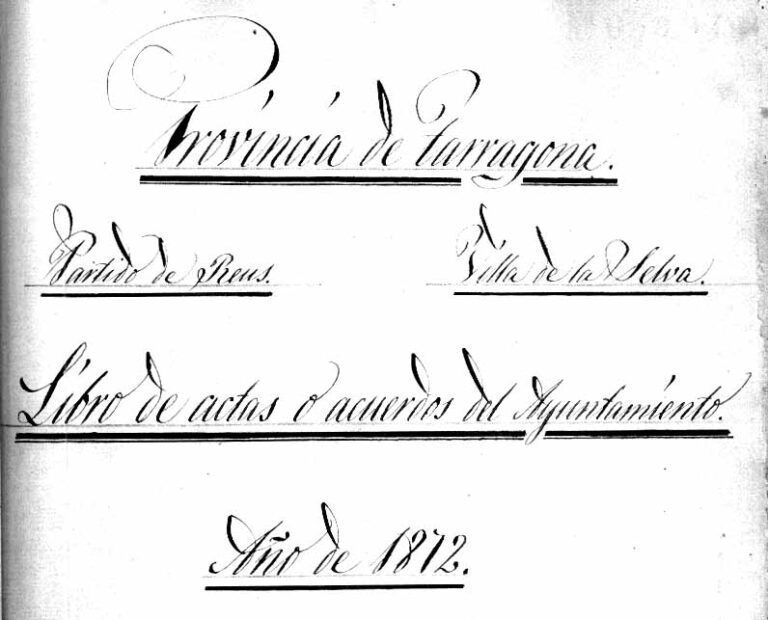 Província de Tarragona.
Partido de Reus. Villa de la Selva.
Libro de actas o acuerdos del Ayuntamiento.
Año de 1872.